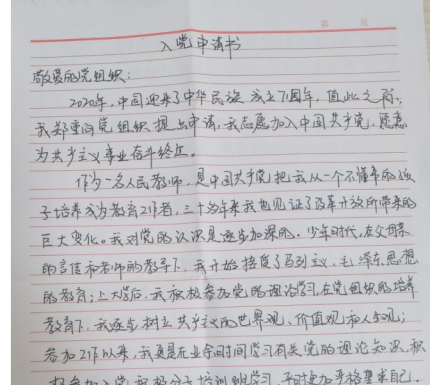 第 页
入党申请书
敬爱的党组织：
2020年，中国迎来了中华民族成立71周年，值此之际，
我郑重向党组织提出申请，我志愿加入中国共产党，愿意
为共产主义事业奋斗终生。
作为一名人民教师，是中国共产党把我从一个不懂事的孩
子培养成为教育工作者，三十多年来我也见证了改革开放所带来的
巨大变化。我对党的认识是逐步加深的，少年时代，在父母亲
的言传和老师的教导下，我开始接受了马列主义、毛泽东思想
的教育；上大学后，我积极参加党的理论学习，在党组织的培养
教育下，我逐步树立共产主义的世界观、价值观和人生观；
参加工作以来，我更是在业余时间学习有关党的理论知识，积
极参加入党积极分子培训班学习，不时更加严格要求自己，